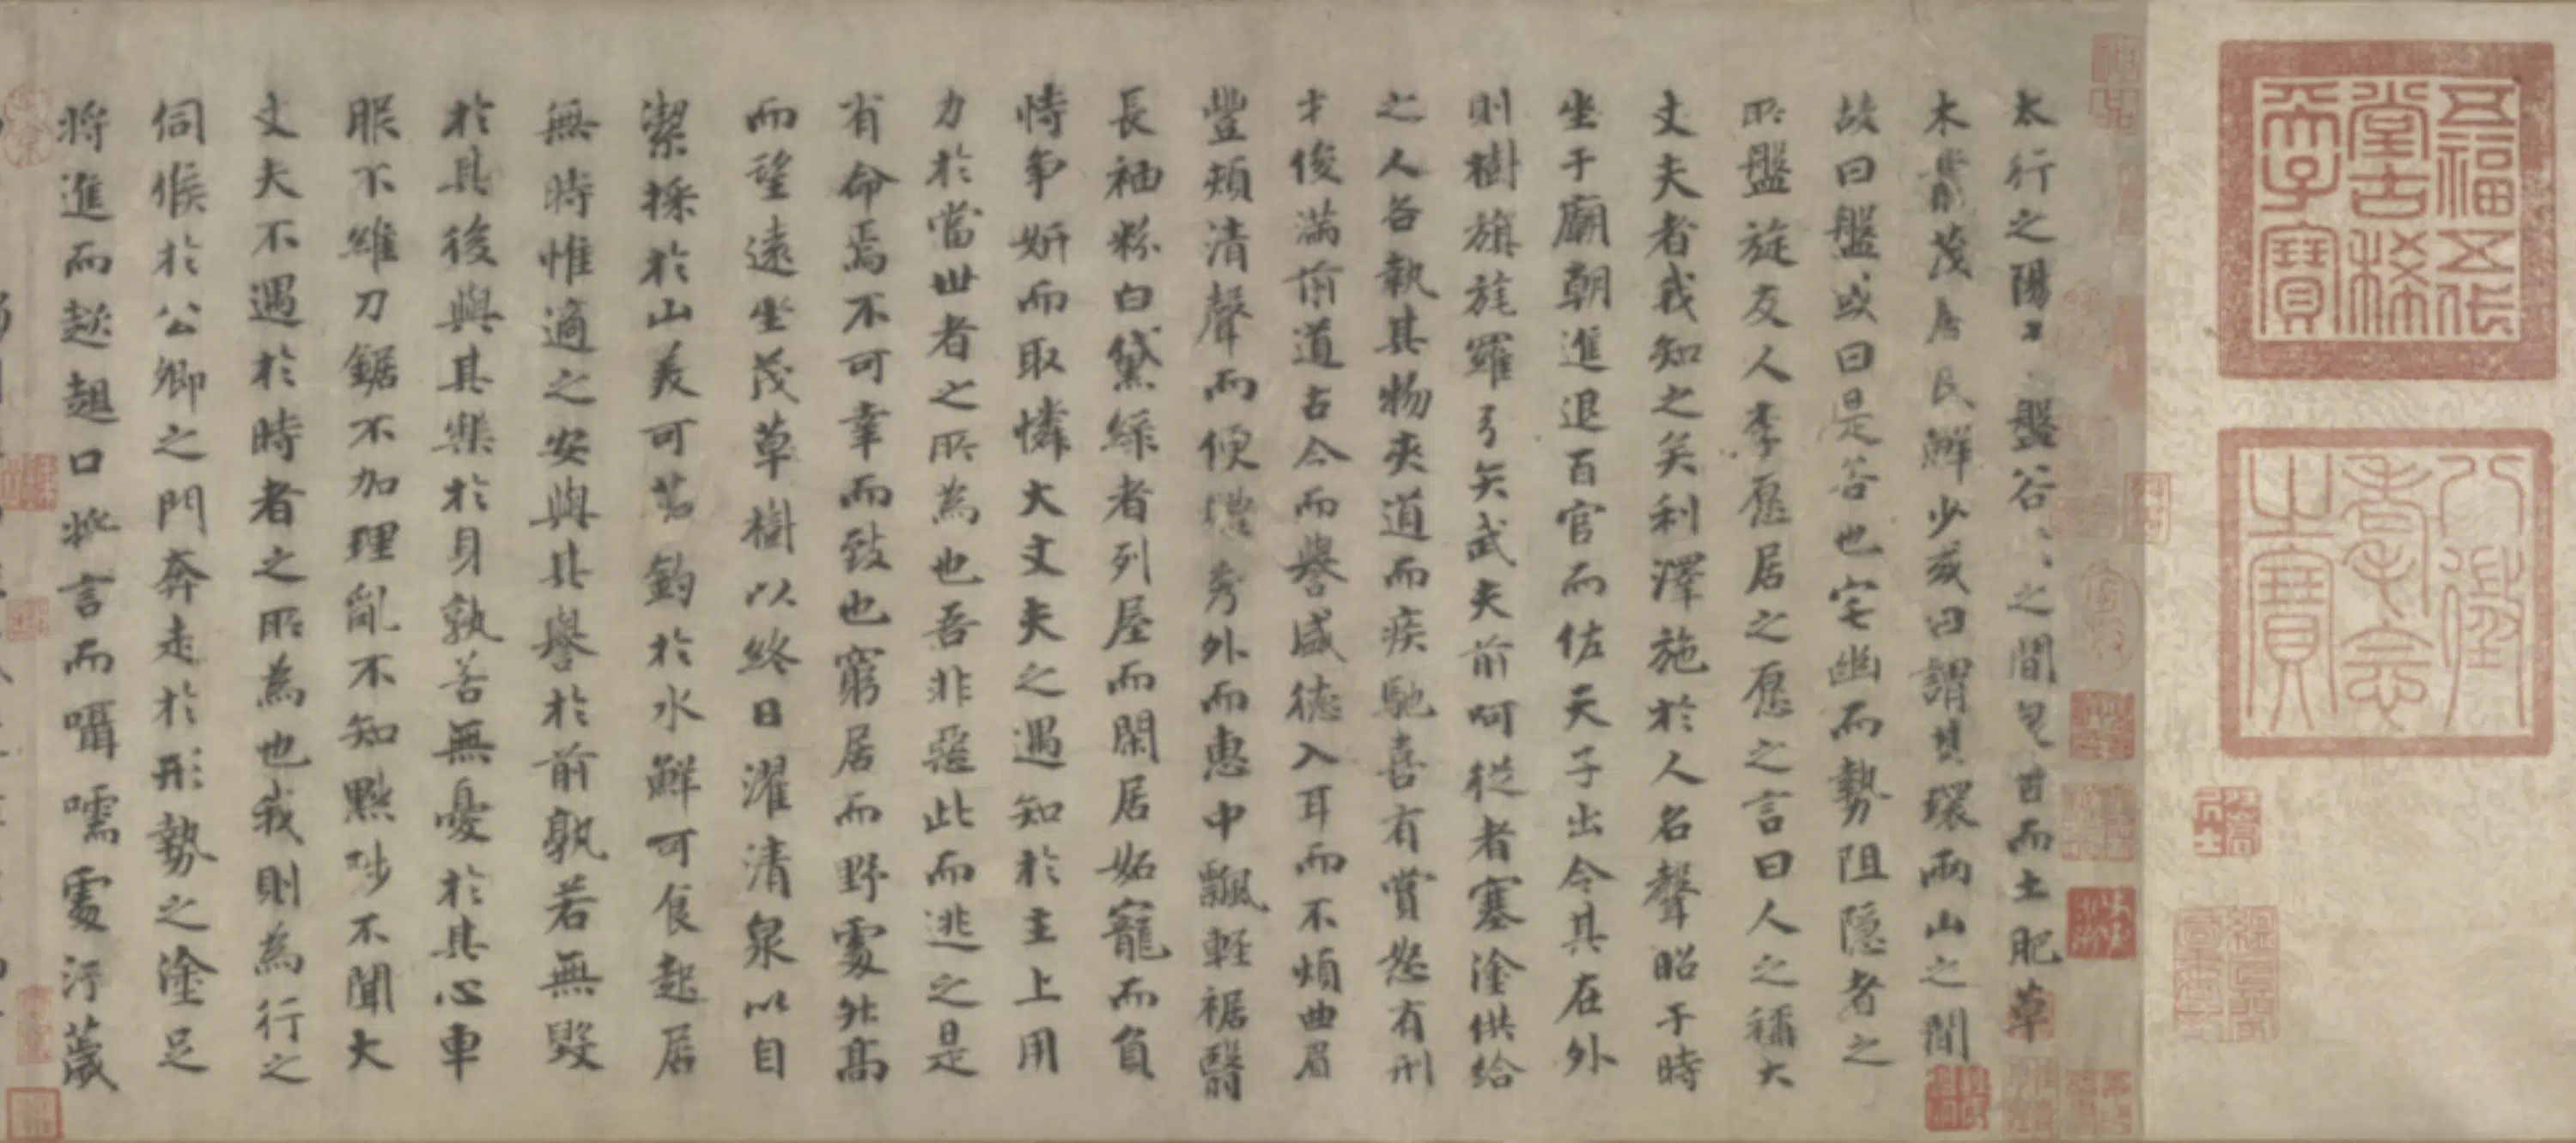 五福五代
堂古稀
天子寶
八徵
耄念
之寶
太行之陽盤谷〻之間泉甘而土肥草
木藂茂居民鮮少或曰謂其環兩山之間
故曰盤或曰是谷也宅幽而勢阻隱者之
所盤旋友人李愿居之愿之言曰人之稱大
丈夫者我知之矣利澤施於人名聲昭于時
坐于廟朝進退百官而佐天子出令其在外
則樹旗旄羅弓矢武夫前呵從者塞塗供給
之人各執其物夾道而疾馳喜有賞怒有刑
才俊滿前道古今而譽盛德入耳而不煩曲眉
豐頰清聲而便體秀外而惠中飄輕裾翳
長袖粉白黛綠者列屋而閑居妬寵而負
恃爭妍而取憐大丈夫之遇知於主上用
力於當世者之所為也吾非惡此而逃之是
有命焉不可幸而致也窮居而野處升高
而望遠坐茂草樹以終日濯清泉以自
潔採於山美可茹釣於水鮮可食起居
無時惟適之安與其譽於前孰若無毀
於其後與其樂於身孰若無憂於其心車
服不維刀鋸不加理亂不知黜陟不聞大
丈夫不遇於時者之所為也我則為行之
伺候於公卿之門奔走於形勢之塗足
將進而趑趄口將言而囁嚅處汙薉